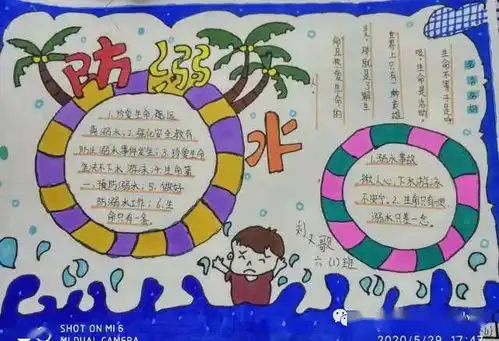 防溺水
1.珍爱生命,强远
离溺水;2.强化安全教育
防止溺水事件发生;3.珍爱生命
坚决不下水游泳;4.生命第
一,预防溺水;5.做好
防溺水工作;6.生
命只有一条。
1.溺水事故
揪人心,下水游泳
不安宁。2.生命只有一次
溺水只差一念。
生命不等于是呼
吸,生命是活动。
世界上只有一种英雄
主义,那就是了解生
命且热爱生命的
刘文歌
六(1)班
SHOT ON MI 6
MI DUAL CAMERA
2020/5/29 17:43